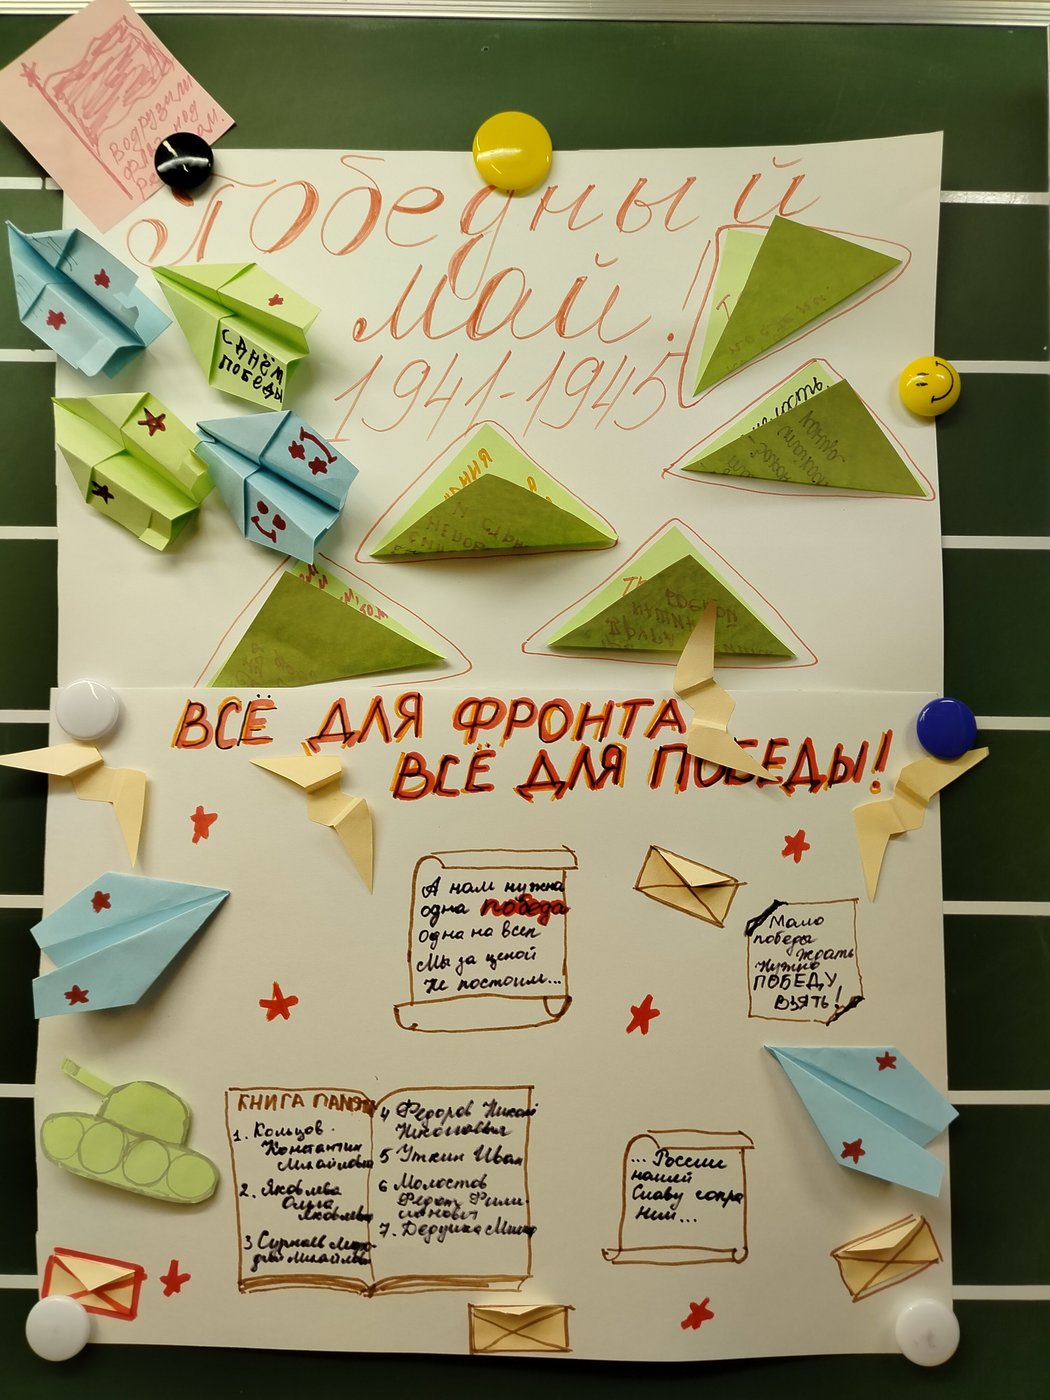 Водрузили
флаг над
Победный
май!
1941-1945
С ДНЁМ
ПОБЕДЫ
ВСЁ ДЛЯ ФРОНТА
ВСЁ ДЛЯ ПОБЕДЫ!
А нам нужна
одна победа
Одна на всех
Мы за ценой
Не постоим...
Мало
победы
ждать
Нужно
ПОБЕДУ
ВЗЯТЬ!
КНИГА ПАМЯТИ
1. Кольцов
Константин
Михайлович
2. Яковлева
Ольга
Яковлевна
3 Сурнаев
4 Федоров Николай
Николаевич
5 Уткин Иван
6 Молостов
Федот Фили-
7. Дедушка Миша
... России
нашей
Славу сохра
ним...